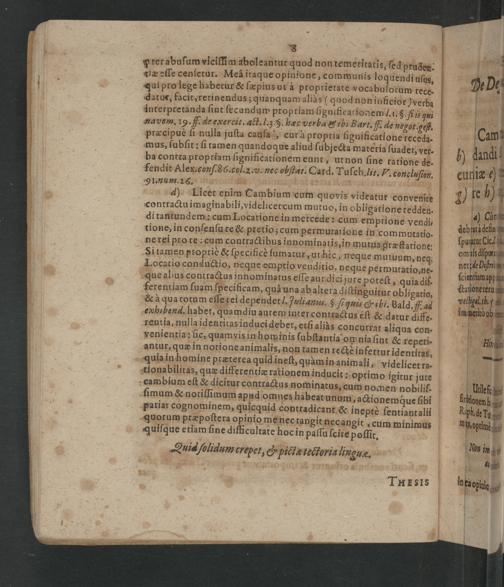 8
p ter abusum vicissim aboleantur quod non temeritatis, sed pruden-
tiæ esse censetur. Meâ itaque opinione, communis loquendi usus,
qui pro lege habetur & sæpius et à proprietate vocabulorum rece-
datur, facit, retinendus; quanquam aliàs (quod non inficior) verba
interpretanda sint secundum propriam significationem l. 1. §. si is qui
navem. 19. ff. de exercit. act. l. 3. §. hæc verba & ibi Bart. ff. de negot. gest.
præcipuè si nulla justa causa, cur à propria significatione receda-
mus, subsit: si tamen quandoque aliud subjecta materia suadet, ver-
ba contra propriam significationem eunt, ut non sine ratione de-
fendit Alex. conf. 86. col. 2. v. nec obstat. Card. Tusch. lit. V. conclusion.
91. num. 26.
d) Licet enim Cambium cum quovis videatur convenire
contractu imaginabili, videlicet cum mutuo, in obligatione redden-
di tantundem: cum Locatione in mercede: cum emptione vendi-
tione, in consensu re & pretio; cum permutatione in commutatio-
ne rei pro re: cum contractibus innominatis, in mutua præstatione:
Si tamen propriè & specificè sumatur, ut hîc, neque mutuum, neq;
Locatio conductio, neque emptio venditio, neque permutatio, ne-
que alius contractus innominatus esse aut dici jure potest, quia dif-
ferentiam suam specificam, quâ una ab altera distinguitur obligatio,
& à qua totum esse rei dependet l. Julianus. § si quis & ibi. Bald. ff. ad
exhibend. habet, quamdiu autem inter contractus est & datur diffe-
rentia, nulla identitas induci debet, etsi aliàs concurrat aliqua con-
venientia: sic, quamvis in hominis substantia omnia sint & reperi-
antur, quæ in notione animalis, non tamen rectè infertur identitas,
quia in homine præterea quid inest, quàm in animali, videlicet ra-
tionabilitas, quæ differentiæ rationem inducit: optimo igitur jure
cambium est & dicitur contractus nominatus, cum nomen nobilis-
simum & notissimum apud omnes habeat unum, actionemque sibi
patiat cognominem, quicquid contradicant & ineptè sentiant alii
quorum præpostera opinio me nec tangit nec angit, cum minimus
quisque etiam sine difficultate hoc in passu scire possit.
Quid solidum crepet, & pictæ tectoria linguæ.
THESIS
De De
Cam
b) dandi
cuniæ e)
g) re h)